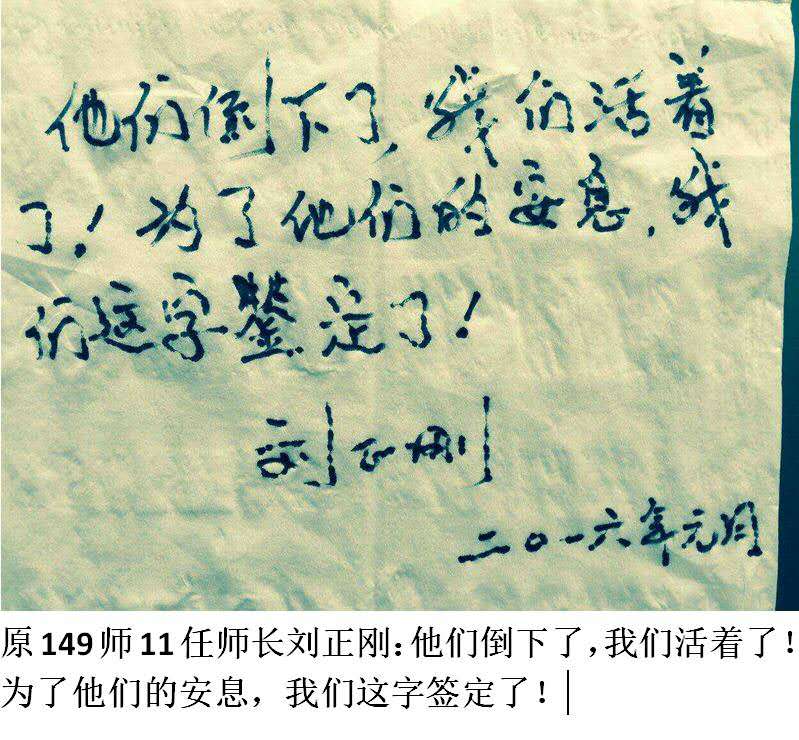 他们倒下了,我们活着
了!为了他们的安息,我
们这字签定了!
刘正刚
二〇一六年元月
原149师11任师长刘正刚:他们倒下了,我们活着了!
为了他们的安息，我们这字签定了!